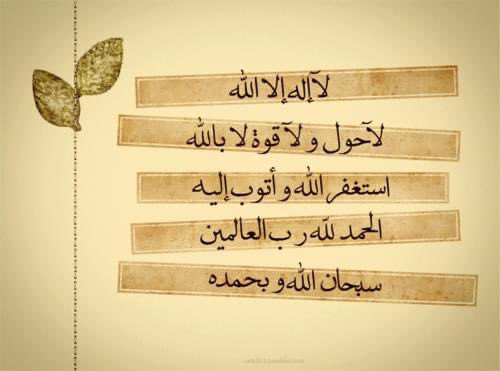 لآإله إلا الله
لآحول و لآ قوة لا بالله
استغفر الله و أتوب إليه
الحمد لله رب العالمين
سبحان الله و بحمده